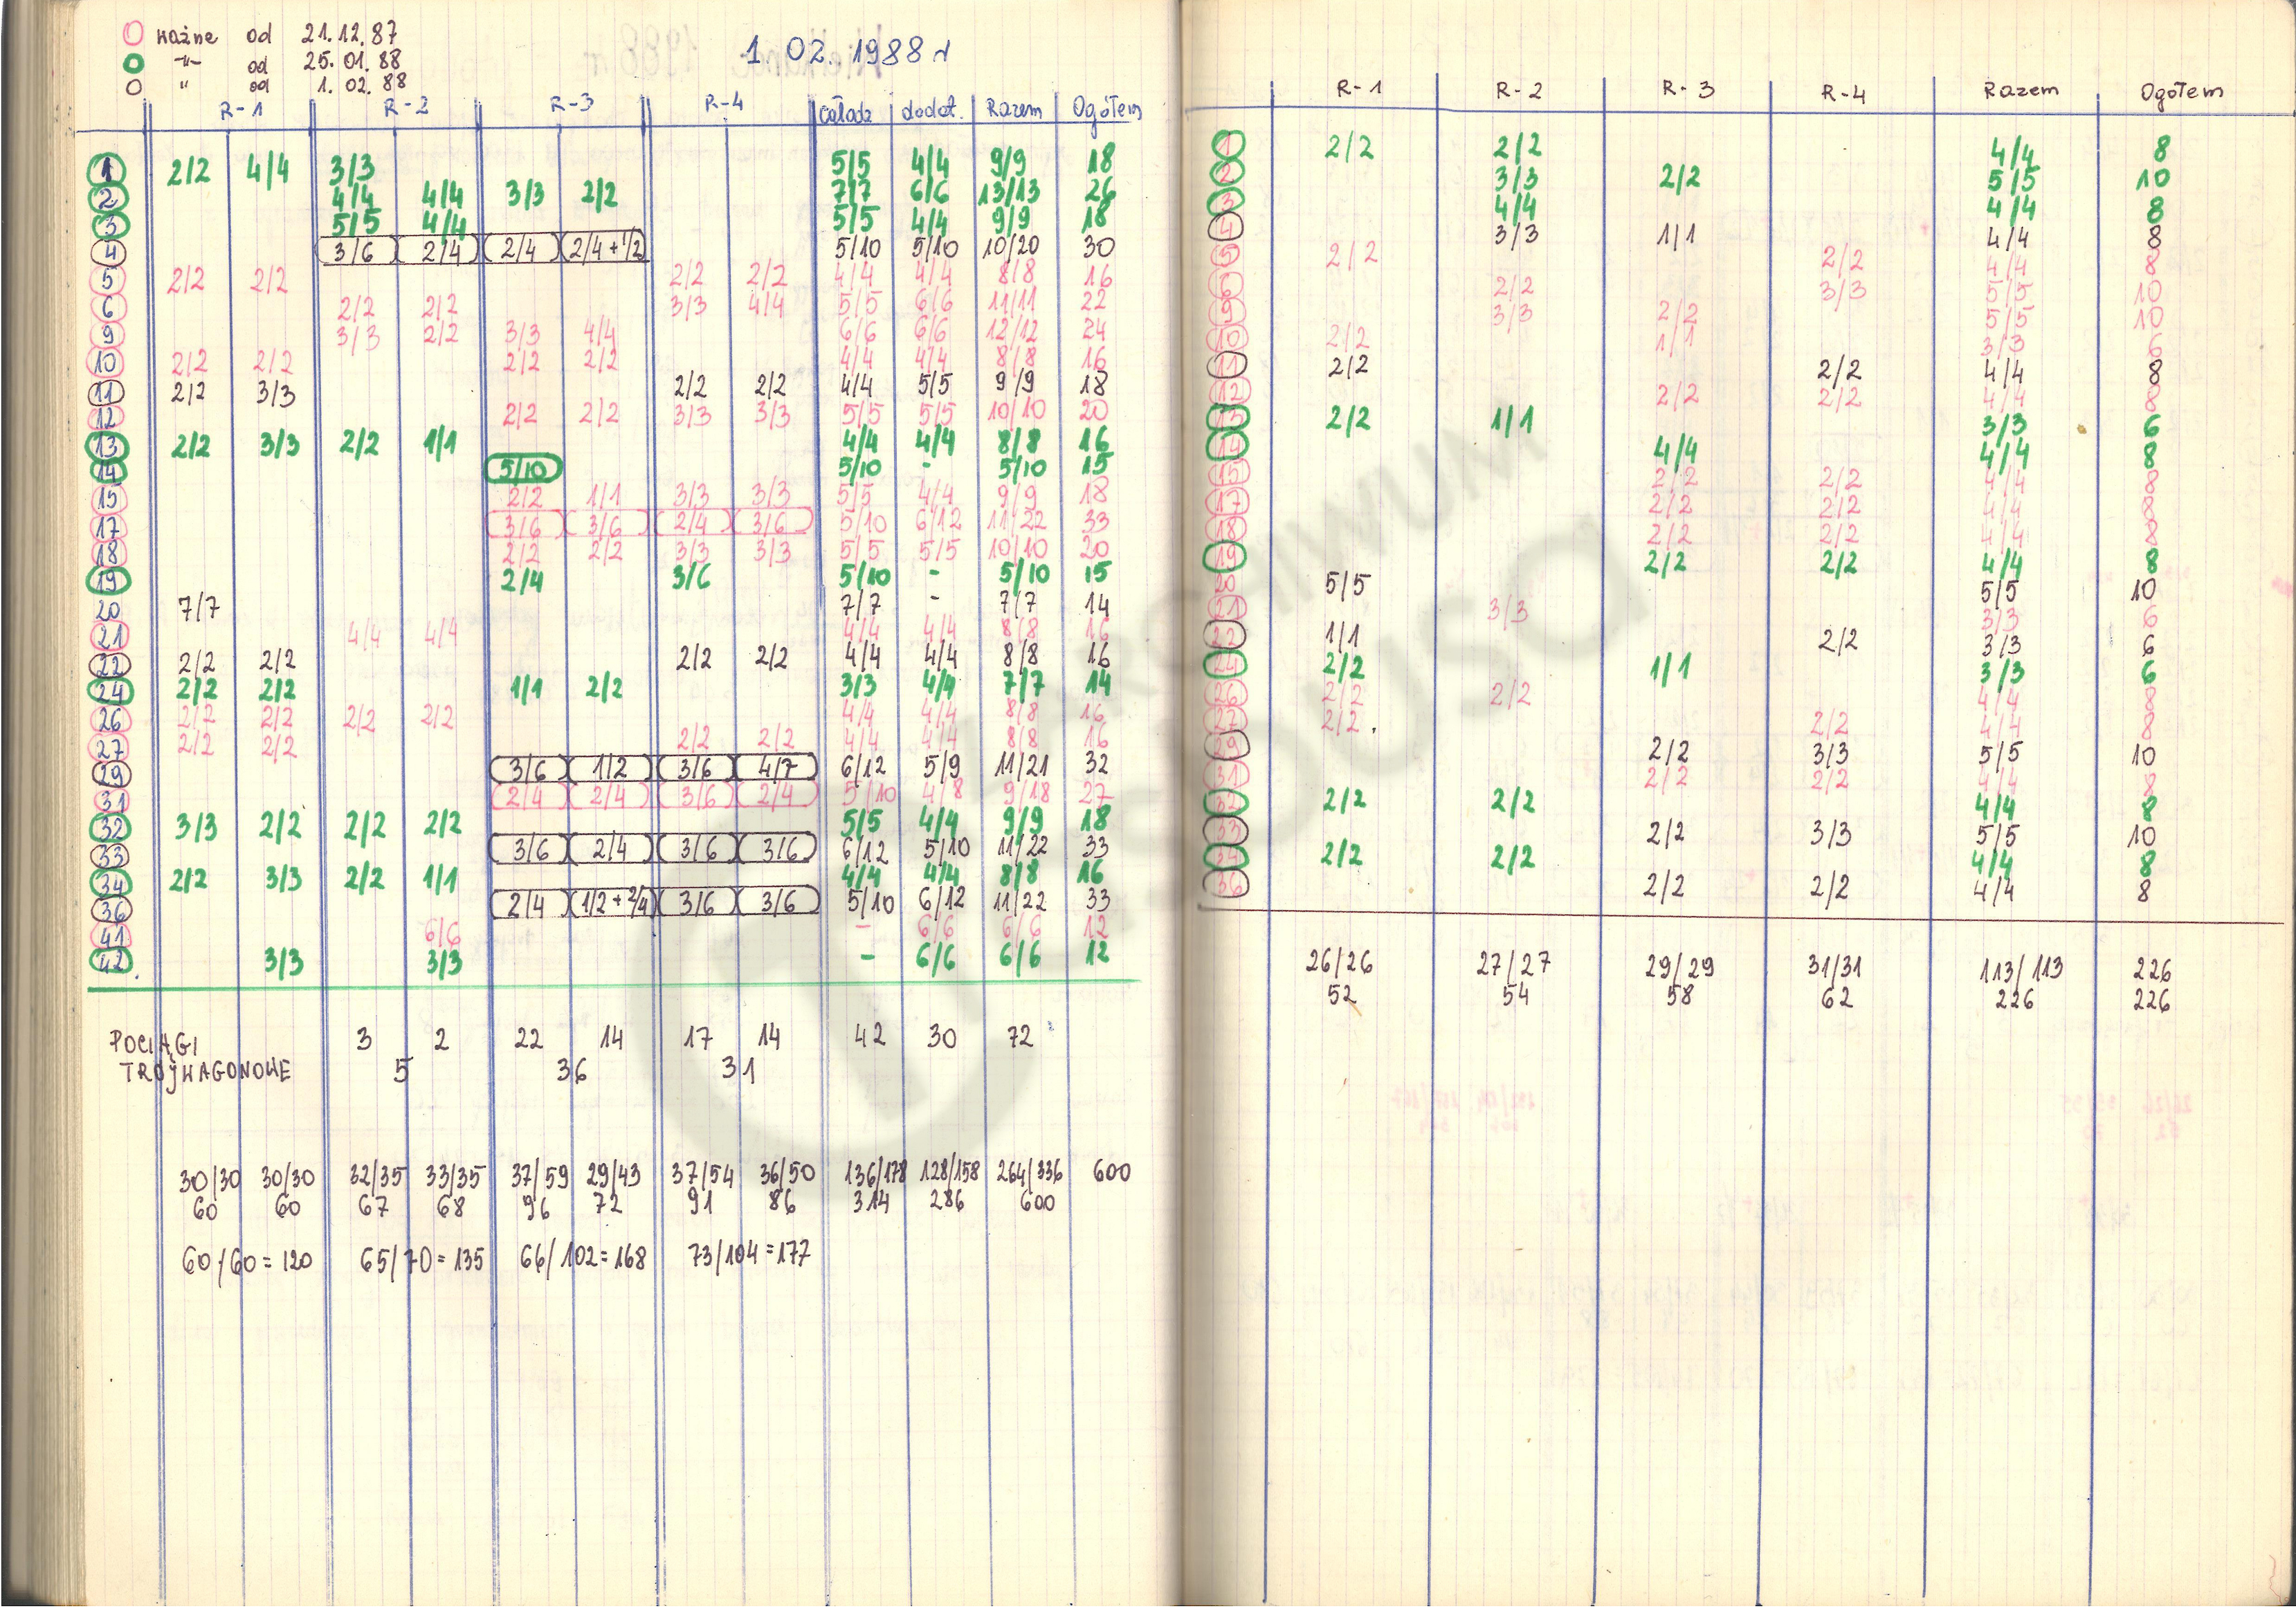 ważne od 21.12.87
-"- od 25.01.88
" od 1.02.88
1.02.1988 r
R-1 R-2 R-3 R-4 całodz dodat. Razem Ogółem
1 2/2 4/4 3/3 5/5 4/4 9/9 18
2 4/4 4/4 3/3 2/2 7/7 6/6 13/13 26
3 5/5 4/4 5/5 4/4 9/9 18
4 3/6 2/4 2/4 2/4+1/2 5/10 5/10 10/20 30
5 2/2 2/2 2/2 2/2 4/4 4/4 8/8 16
6 2/2 2/2 3/3 4/4 5/5 6/6 11/11 22
9 3/3 2/2 3/3 4/4 6/6 6/6 12/12 24
10 2/2 2/2 2/2 2/2 4/4 4/4 8/8 16
11 2/2 3/3 2/2 2/2 4/4 5/5 9/9 18
12 2/2 2/2 3/3 3/3 5/5 5/5 10/10 20
13 2/2 3/3 2/2 1/1 4/4 4/4 8/8 16
14 5/10 5/10 - 5/10 15
15 2/2 1/1 3/3 3/3 5/5 4/4 9/9 18
17 3/6 3/6 2/4 3/6 5/10 6/12 11/22 33
18 2/2 2/2 3/3 3/3 5/5 5/5 10/10 20
19 2/4 3/6 5/10 - 5/10 15
20 7/7 7/7 - 7/7 14
21 4/4 4/4 4/4 4/4 8/8 16
22 2/2 2/2 2/2 2/2 4/4 4/4 8/8 16
24 2/2 2/2 1/1 2/2 3/3 4/4 7/7 14
26 2/2 2/2 2/2 2/2 4/4 4/4 8/8 16
27 2/2 2/2 2/2 2/2 4/4 4/4 8/8 16
29 3/6 1/2 3/6 4/7 6/12 5/9 11/21 32
31 2/4 2/4 3/6 2/4 5/10 4/8 9/18 27
32 3/3 2/2 2/2 2/2 5/5 4/4 9/9 18
33 3/6 2/4 3/6 3/6 6/12 5/10 11/22 33
34 2/2 3/3 2/2 1/1 4/4 4/4 8/8 16
36 2/4 1/2+2/4 3/6 3/6 5/10 6/12 11/22 33
41 6/6 - 6/6 6/6 12
42. 3/3 3/3 - 6/6 6/6 12
POCIĄGI 3 2 22 14 17 14 42 30 72
TRÓJWAGONOWE 5 36 31
30/30 30/30 32/35 33/35 37/59 29/43 37/54 36/50 136/178 128/158 264/336 600
60 60 67 68 96 72 91 86 314 286 600
60/60=120 65/70=135 66/102=168 73/104=177
R-1 R-2 R-3 R-4 Razem Ogółem
1 2/2 2/2 4/4 8
2 3/3 2/2 5/5 10
3 4/4 4/4 8
4 3/3 1/1 4/4 8
5 2/2 2/2 4/4 8
6 2/2 3/3 5/5 10
9 3/3 2/2 5/5 10
10 2/2 1/1 3/3 6
11 2/2 2/2 4/4 8
12 2/2 2/2 4/4 8
13 2/2 1/1 3/3 6
14 4/4 4/4 8
15 2/2 2/2 4/4 8
17 2/2 2/2 4/4 8
18 2/2 2/2 4/4 8
19 2/2 2/2 4/4 8
20 5/5 5/5 10
21 3/3 3/3 6
22 1/1 2/2 3/3 6
24 2/2 1/1 3/3 6
26 2/2 2/2 4/4 8
27 2/2. 2/2 4/4 8
29 2/2 3/3 5/5 10
31 2/2 2/2 4/4 8
32 2/2 2/2 4/4 8
33 2/2 3/3 5/5 10
34 2/2 2/2 4/4 8
36 2/2 2/2 4/4 8
26/26 27/27 29/29 31/31 113/113 226
52 54 58 62 226 226